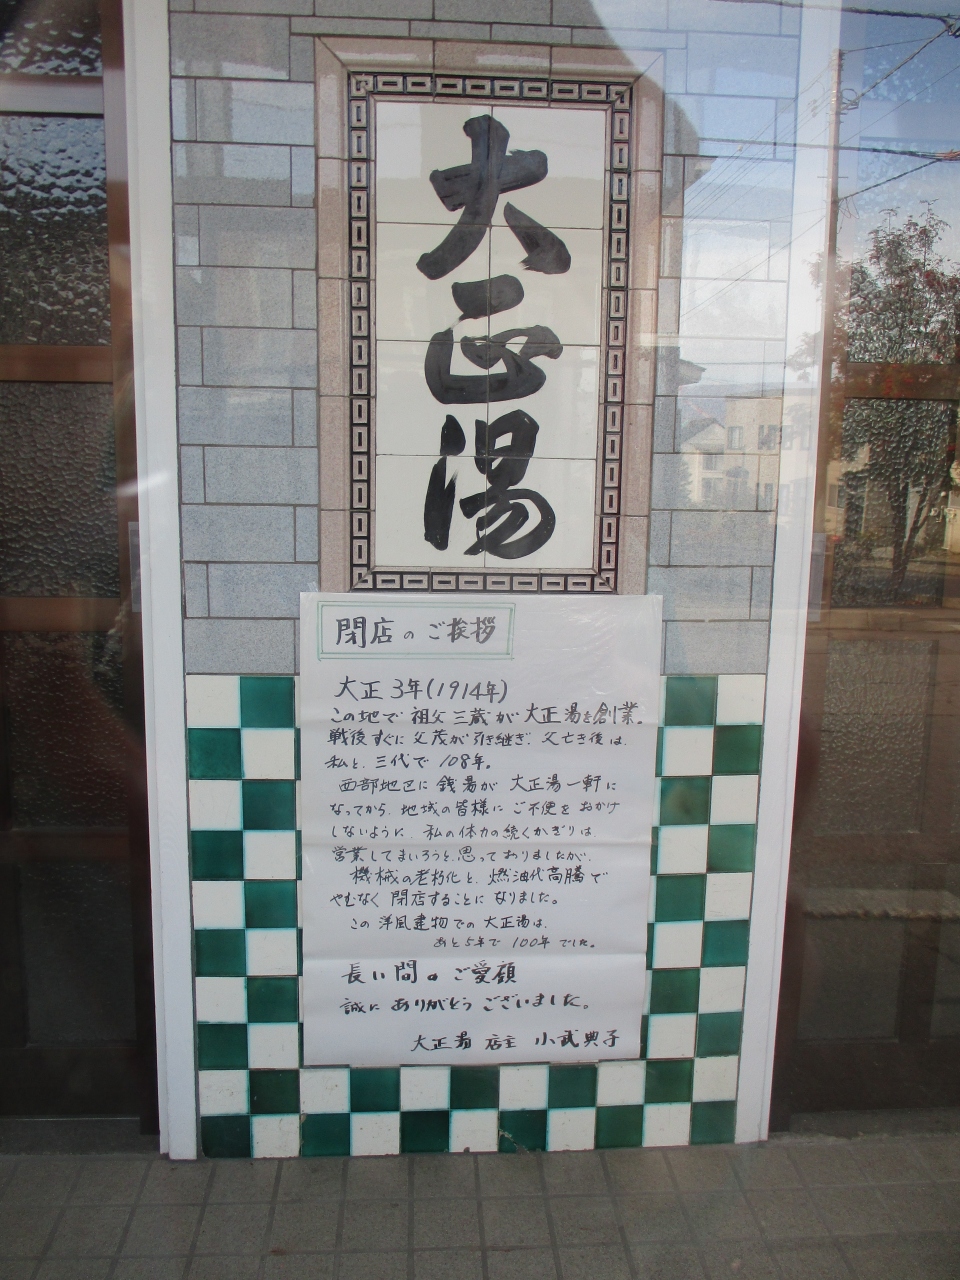 大正湯
閉店のご挨拶
大正3年(1914年)
この地で祖父三蔵が大正湯を創業。
戦後すぐに父茂が引き継ぎ、父亡き後は、
私と、三代で108年。
西部地区に銭湯が大正湯一軒に
なってから、地域の皆様にご不便をおかけ
しないように、私の体力の続くかぎりは、
営業してまいろうと思っておりましたが、
機械の老朽化と、燃油代高騰で
やむなく閉店することになりました。
この洋風建物での大正湯は、
あと5年で100年でした。
長い間のご愛顧
誠にありがとうございました。
大正湯 店主 小武典子